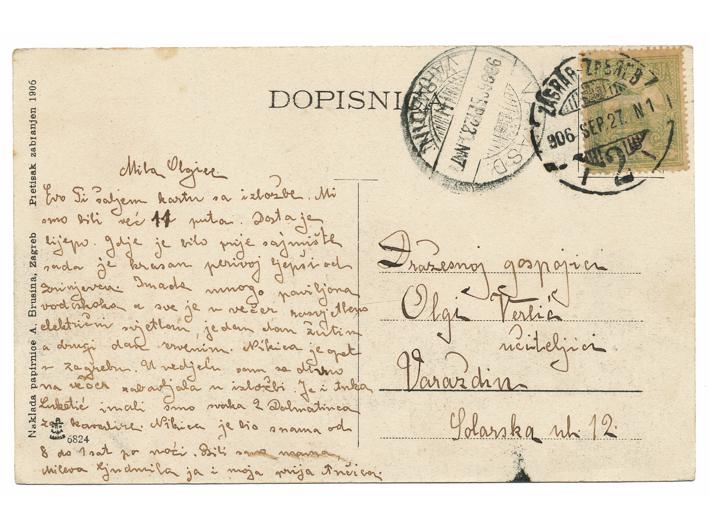 DOPISNI
ZAGRAB ZAGREB
906 SEP. 27. N1
VARASD
906 SEP 28
VARAŽDIN
Mila Olgice
Evo Ti šaljem kartu sa izložbe. Mi
smo bili već 11 puta. Dosta je
lijepo. Gdje je bilo prije sajmište
sada je krasan perivoj ljepši od
Zrinjevca. Imade mnogo paviljona
vodoskoka a sve je u večer
električni svjetlom, jedan dan žutim
a drugi dan crvenim. Nikica je opet
u Zagrebu. U nedjelu sam se
na večer zabavljala u izložbi. Je i Anka
Luketić imali smo svaka 2 Dalmatinca
za kavalire. Nikica je bio s nama od
8 do 1 sat po noći. Bili smo mama
Mileva Ljudmila ja i moja prija Ančica.
Dražesnoj gospojici
Olgi Vertić
učiteljici
Varaždin
Solarska ul. 12.
Naklada papirnice A. Brusina, Zagreb Pretisak zabranjen 1906
6824